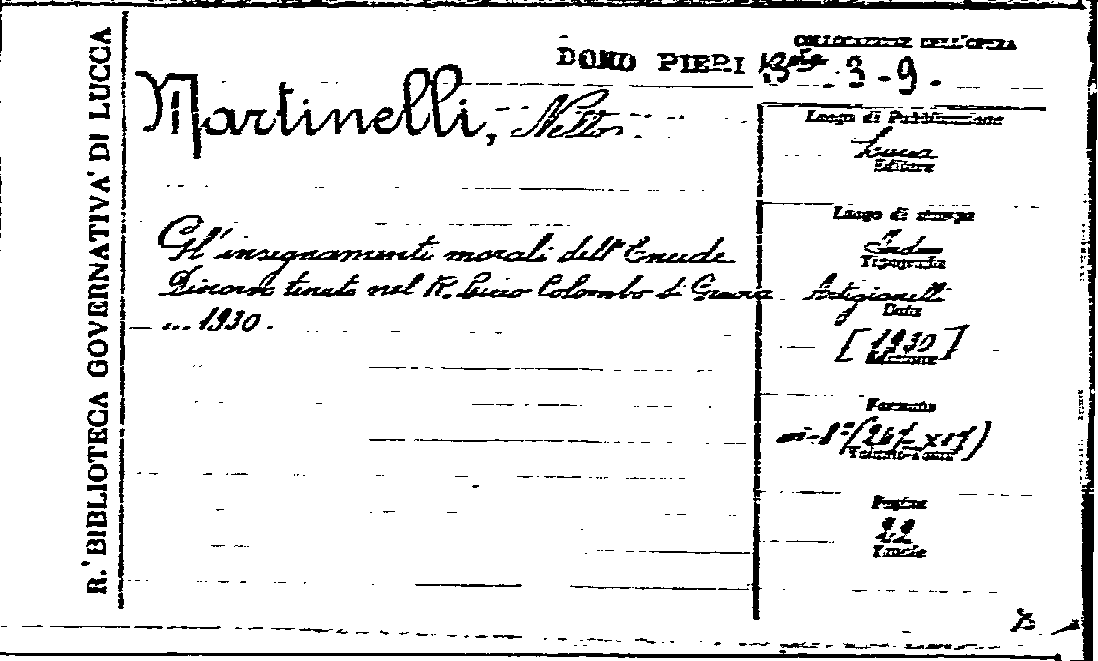 R. BIBLIOTECA GOVERNATIVA DI LUCCA
COLLOCAZIONE DELL'OPERA
DONO PIERI B.ta 3-9.
Martinelli,
Gl'insegnamenti morali dell'Eneide
Discorso tenuto nel R. Liceo Colombo di Genova
... 1930.
Luogo di Pubblicazione
Lucca
Editore
Luogo di stampa
Tipografia
Artigianelli
Data
[1930]
Formato
in-8°
Pagine
22
Tavole